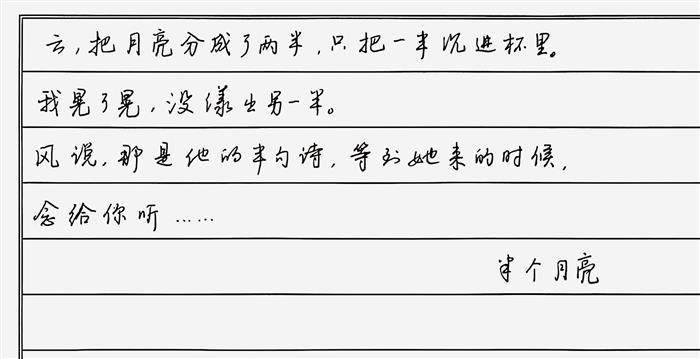 云,把月亮分成了两半,只把一半沉进杯里。
我晃了晃,没漾出另一半。
风说,那是他的半句诗,等到她来的时候,
念给你听……
半个月亮